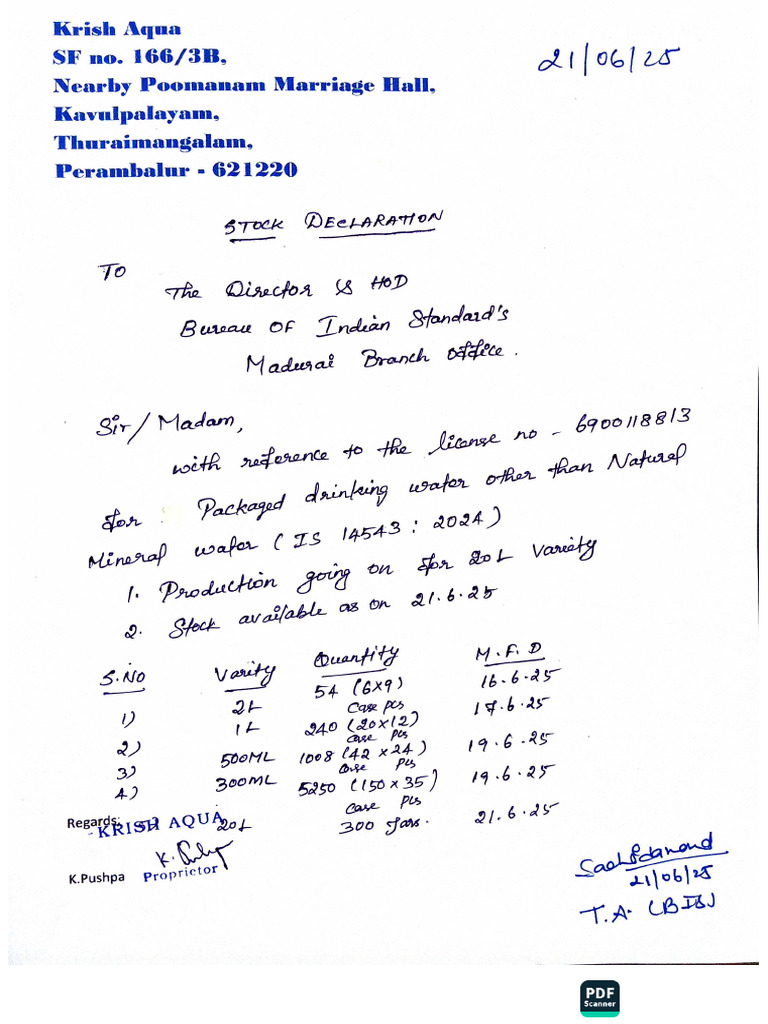 Krish Aqua
SF no. 166/3B,
21/06/25
Nearby Poomanam Marriage Hall,
Kavulpalayam,
Thuraimangalam,
Perambalur - 621220
STOCK DECLARATION
TO
The Director & HOD
Bureau OF Indian Standard's
Madurai Branch office.
Sir/Madam,
with reference to the license no - 6900118813
for Packaged drinking water other than Natural
Mineral water (IS 14543 : 2024)
1. Production going on for 20L Variety
2. Stock available as on 21.6.25
S.NO Varity Quantity M.F.D
1) 2L 54 (6x9) 16.6.25
Case Pcs
2) 1L 240 (20x12) 17.6.25
Case Pcs
3) 500ML 1008 (42 x 24) 19.6.25
Case Pcs
4) 300ML 5250 (150 x 35) 19.6.25
Case Pcs
Regards: 20L 300 Jars. 21.6.25
KRISH AQUA
K.Pushpa Proprietor
Sachidanand
21/06/25
T.A. (BIS)
PDF
Scanner